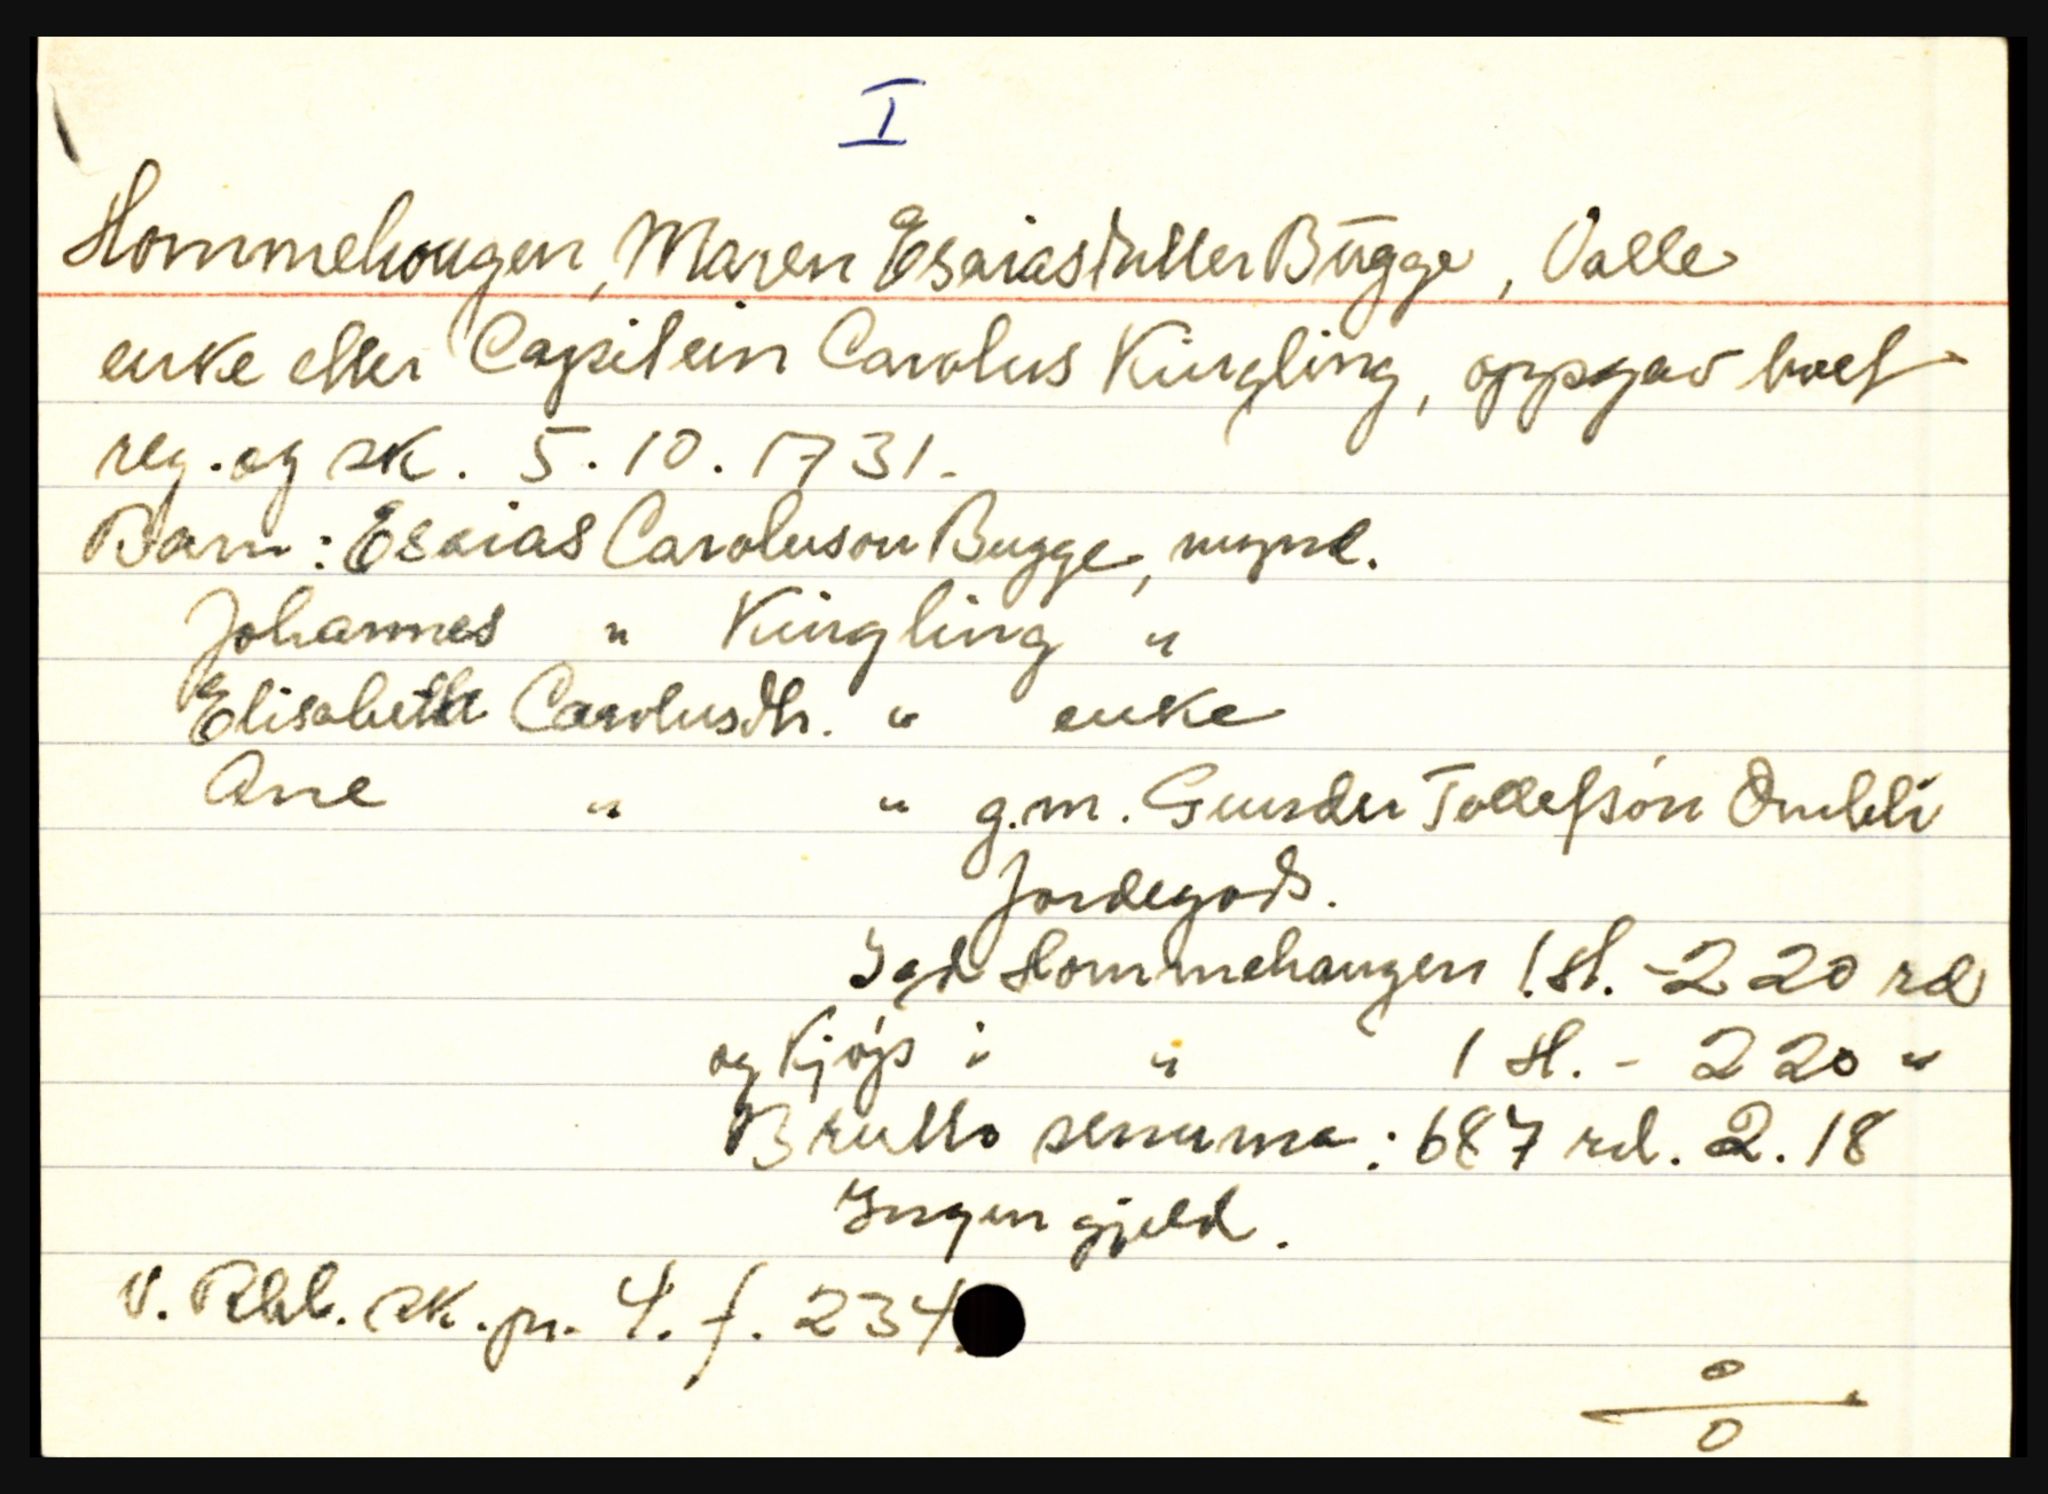 I
Hommehougen, Maren Esaiasdatter Bugge, Valle
enke etter Capitein Carolus Kingling, oppgav boet
reg. og sk. 5.10.1731.
Barn: Esaias Caroluson Bugge, mynd.
Johannes " Kingling "
Elisabeth Carolusdtr. " enke
Ane " " g.m. Gunder Tollefsón Ombli
Jordegods.
I gd Hommehaugen 1 H. - 220 rd
og Kjøp i " 1 H. - 220 "
Brutto summa: 687 rd. 2. 18
Ingen gjeld.
V. Rbl. sk. pr. 4. f. 234.
0
0